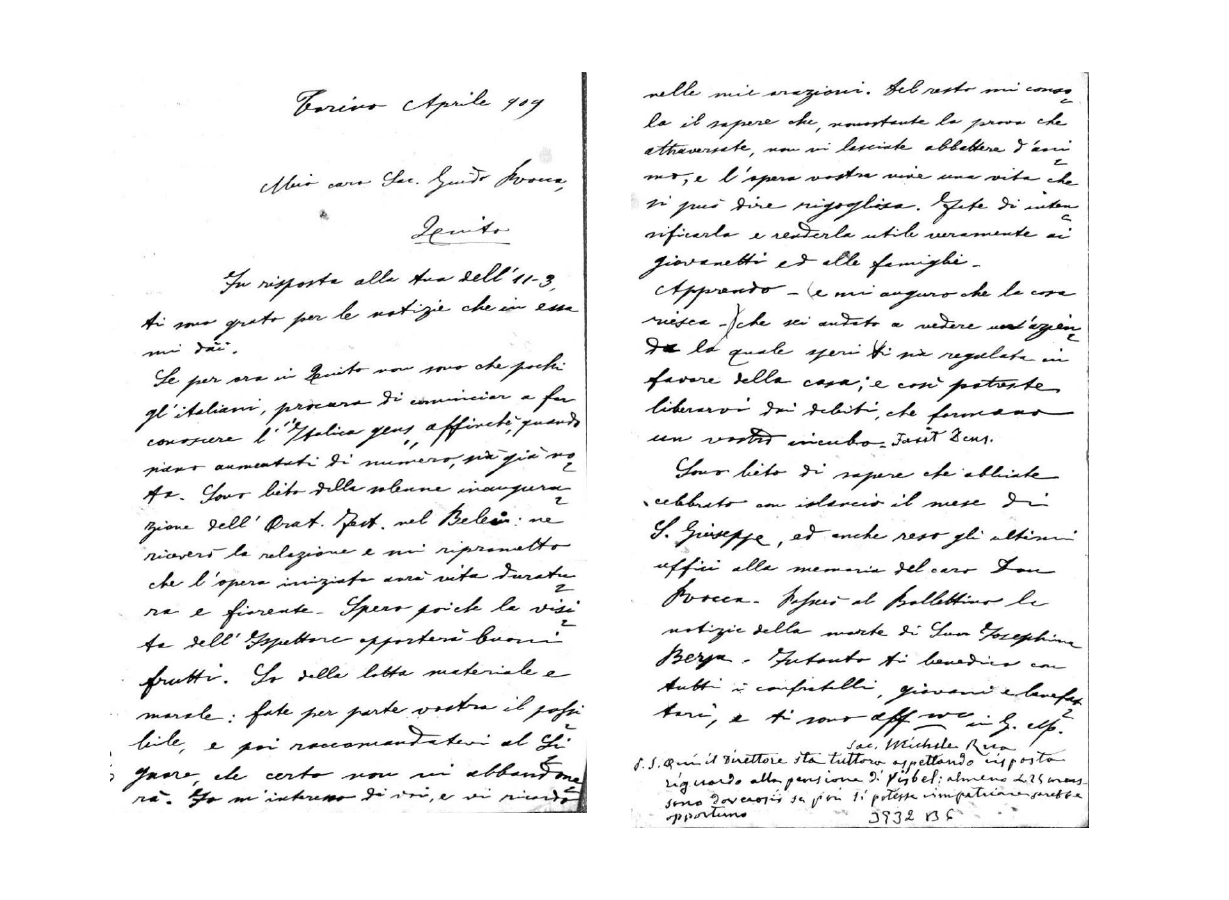 Torino Aprile 909
Mio caro Sac. Guido Rocca,
Quito
In risposta alla tua dell' 11-3,
ti sono grato per le notizie che in essa
mi dai.
Se per ora in Quito non sono che pochi
gl'italiani, procura di cominciar a far
conoscere l'"Italica gens" affinchè, quando
siano aumentati di numero, sia già no
ta. Sono lieto della solenne inaugura
zione dell' Orat. Fest. nel Belem: ne
riceverò la relazione e mi riprometto
che l'opera iniziata avrà vita duratu
ra e fiorente. Spero poichè la visi
ta dell' Ispettore apporterà buoni
frutti. So della lotta materiale e
morale: fate per parte vostra il possi
bile, e poi raccomandatevi al Si
gnore, che certo non vi abbandone
rà. Io m'interesso di voi, e vi ricordo
nelle mie orazioni. Del resto mi conso
la il sapere che, nonostante la prova che
attraversate, non vi lasciate abbattere d'ani
mo, e l'opera vostra vive una vita che
si può dire rigogliosa. Fate di inten
sificarla e renderla utile veramente ai
giovanetti ed alle famiglie.
Apprendo - (e mi auguro che la cosa
riesca -) che sei andato a vedere un'azien
da la quale speri ti sia regalata in
favore della casa; e così potreste
liberarvi dai debiti, che formano
un vostro incubo. Faxit Deus.
Sono lieto di sapere che abbiate
celebrato con islancio il mese di
S. Giuseppe, ed anche reso gli ultimi
uffici alla memoria del caro Don
Rocca. Passerò al Bollettino le
notizie della morte di Suor Josephina
. Intanto ti benedico con
tutti i confratelli, giovani e benefat
tori, e ti sono aff mo in G. M.
Sac. Michele Rua
P.S. Qui il Direttore sta tuttora aspettando risposta
riguardo alla pensione di : almeno L 25 mens.
sono doverosi se poi si potesse rimpatriare sarebbe
opportuno
3932 B 6